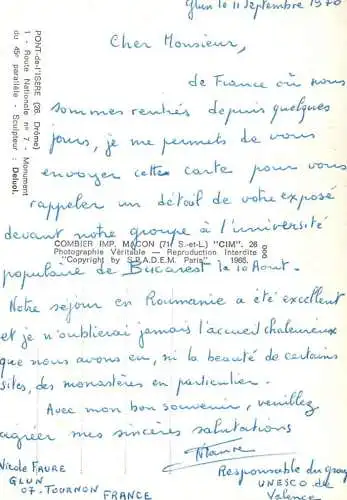 Glun le 11 Septembre 1970
Cher Monsieur,
de France où nous
sommes rentrés depuis quelques
jours, je me permets de vous
envoyer cette carte pour vous
rappeler un détail de votre exposé
devant notre groupe à l'université
populaire de Bucarest le 10 Aout.
Notre séjour en Roumanie a été excellent
et je n'oublierai jamais l'accueil chaleureux
que nous avons eu, ni la beauté de certains
sites, des monastères en particulier.
Avec mon bon souvenir, veuillez
agréer mes sincères salutations
NFaure
Nicole FAURE
GLUN
07. TOURNON
FRANCE
Responsable du group
UNESCO de
Valence
PONT-de-l'ISÈRE (26. Drôme)
1 - Route Nationale n° 7 - Monument
du 45e parallèle - Sculpteur : Deuol.
COMBIER IMP. MACON (71. S.-et-L.) "CIM". 26
Photographie Véritable — Reproduction Interdite
"Copyright by S.P.A.D.E.M. Paris" 1965.